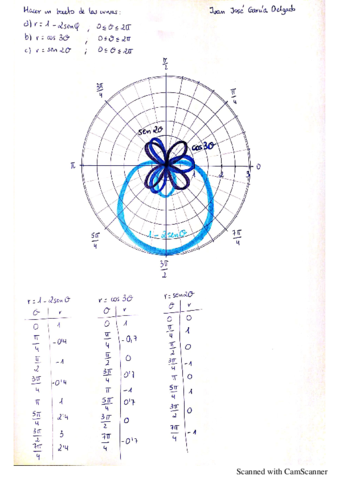 Hacer un trazado de las curvas:
Juan José García Delgado
a) r = 1 - 2senθ , 0 ≤ θ ≤ 2π
b) r = cos 3θ ; 0 ≤ θ ≤ 2π
c) r = sen 2θ ; 0 ≤ θ ≤ 2π
π/2
3π/4
π/4
sen 2θ
cos3θ
π
1
2
3
0
1-2senθ
5π/4
7π/4
3π/2
r = 1 - 2senθ
θ r
0 1
π/4 -0'4
π/2 -1
3π/4 -0'4
π 1
5π/4 2'4
3π/2 3
7π/4 2'4
r = cos 3θ
θ r
0 1
π/4 -0,7
π/2 0
3π/4 0'7
π -1
5π/4 0'7
3π/2 0
7π/4 -0'7
r = sen2θ
θ r
0 0
π/4 1
π/2 0
3π/4 -1
π 0
5π/4 1
3π/2 0
7π/4 -1
Scanned with CamScanner